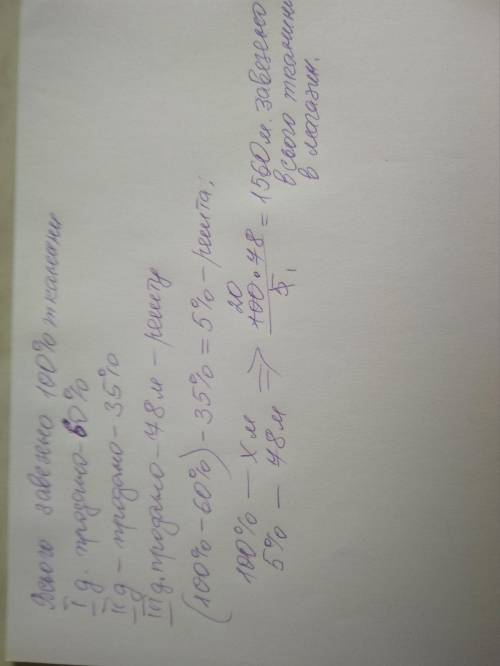 Всього завезено 100% тканини
I д. продано 60%
II д – продано – 35%
III д. продано – 48 м – решту
(100% – 60%) – 35% = 5% – решта;
100% – х м
5% – 48 м => 20 100 • 78 / 5 = 1560 м. завезено
всього тканини
в магазин.